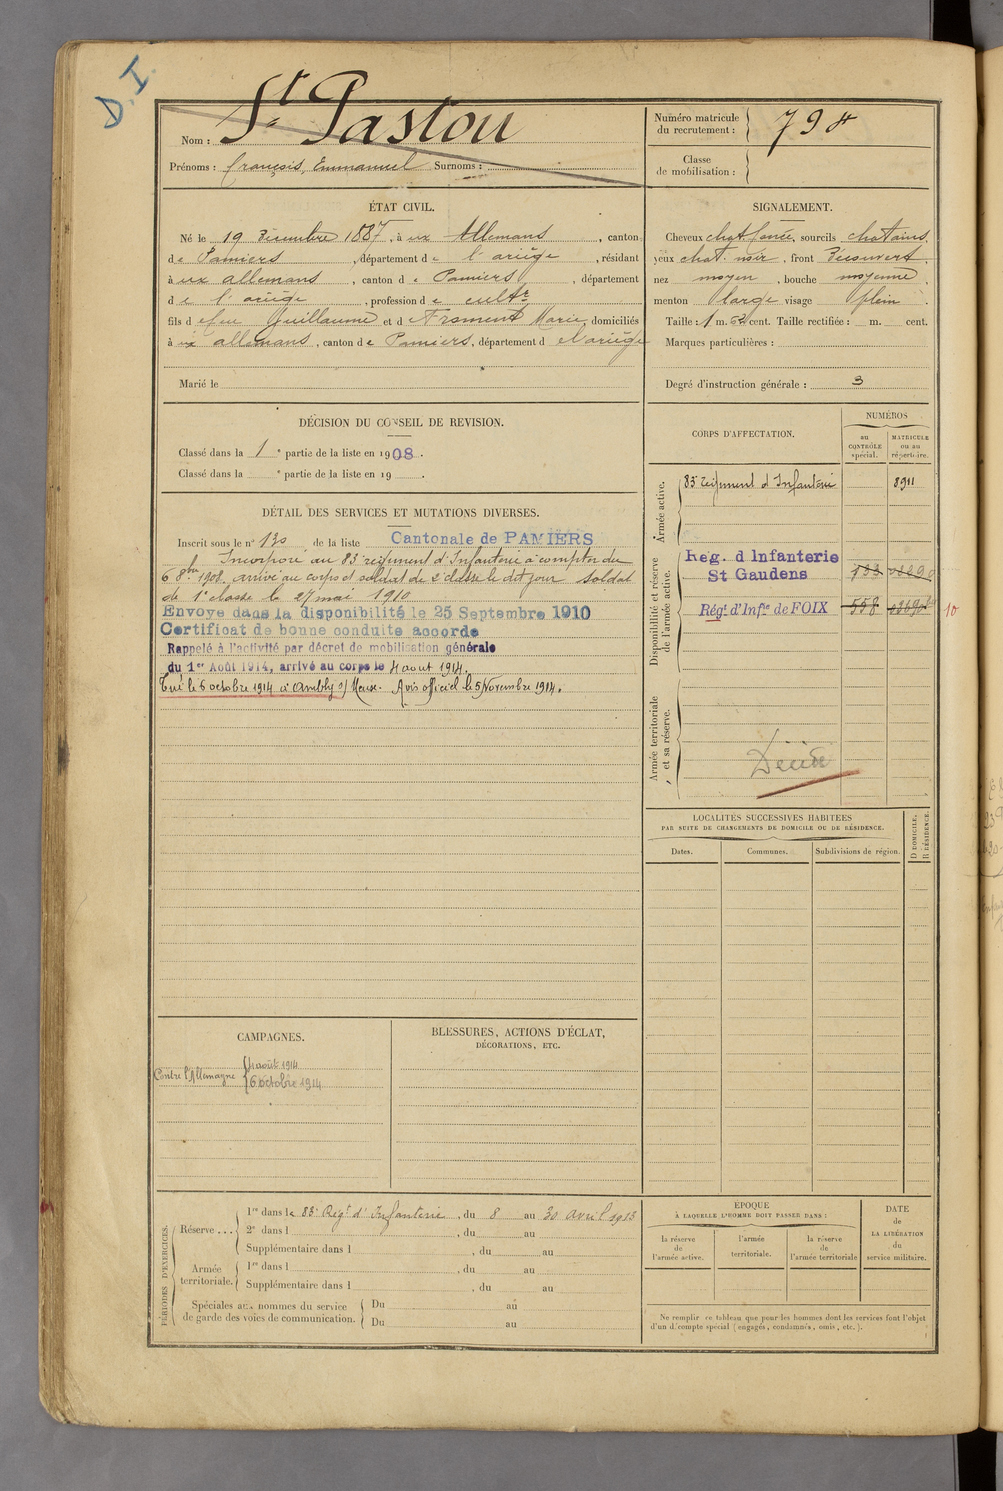 D. I.
Nom : St Pastou
Prénoms : François, Emmanuel Surnoms :
Numéro matricule du recrutement : 798
Classe de mobilisation :
ÉTAT CIVIL.
Né le 19 Décembre 1887, à ux Allemans, canton
de Pamiers, département de l'ariège, résidant
à ux allemans, canton de Pamiers, département
de l'ariège, profession de cultr
fils de feu Guillaume et de Froment Marie, domiciliés
à ux allemans, canton de Pamiers, département de l'ariège
Marié le
SIGNALEMENT.
Cheveux chat. foncé, sourcils chatains,
yeux chat. noir, front Découvert,
nez moyen, bouche moyenne,
menton large visage plein.
Taille : 1 m. cent. Taille rectifiée : m. cent.
Marques particulières :
Degré d'instruction générale : 3
DÉCISION DU CONSEIL DE REVISION.
Classé dans la 1e partie de la liste en 1908.
Classé dans la e partie de la liste en 19 .
DÉTAIL DES SERVICES ET MUTATIONS DIVERSES.
Inscrit sous le n° 130 de la liste Cantonale de PAMIERS
Incorporé au 83e régiment d'Infanterie à compter du
6 8bre 1908. arrivé au corps et soldat de 2e classe le dit jour Soldat
de 1e classe le 27 mai 1910
Envoyé dans la disponibilité le 25 Septembre 1910
Certificat de bonne conduite accordé
Rappelé à l'activité par décret de mobilisation générale
du 1er Août 1914, arrivé au corps le 4 aout 1914.
Tué le 6 octobre 1914 à Ambly s/ Meuse. Avis officiel le 5 Novembre 1914.
CORPS D'AFFECTATION.
NUMÉROS
au CONTRÔLE spécial.
MATRICULE ou au répertoire.
Armée active.
83e régiment d'Infanterie 8911
Disponibilité et réserve de l'armée active.
Reg. d Infanterie
St Gaudens 733
Régt d'Infie de FOIX 558
10
Armée territoriale et sa réserve.
Décédé
LOCALITÉS SUCCESSIVES HABITÉES
PAR SUITE DE CHANGEMENTS DE DOMICILE OU DE RÉSIDENCE.
Dates. Communes. Subdivisions de région. D DOMICILE. R RÉSIDENCE.
CAMPAGNES.
Contre l'Allemagne { 4 août 1914
6 octobre 1914
BLESSURES, ACTIONS D'ÉCLAT,
DÉCORATIONS, ETC.
PÉRIODES D'EXERCICES.
Réserve . . .
1re dans le 83e Régt d'Infanterie, du 8 au 30 avril 1913
2e dans l , du au
Supplémentaire dans l , du au
Armée territoriale.
1re dans l , du au
Supplémentaire dans l , du au
Spéciales aux hommes du service de garde des voies de communication.
Du au
Du au
ÉPOQUE
À LAQUELLE L'HOMME DOIT PASSER DANS :
la réserve de l'armée active.
l'armée territoriale.
la réserve de l'armée territoriale
DATE de LA LIBÉRATION du service militaire.
Ne remplir ce tableau que pour les hommes dont les services font l'objet
d'un décompte spécial (engagés, condamnés, omis, etc.).